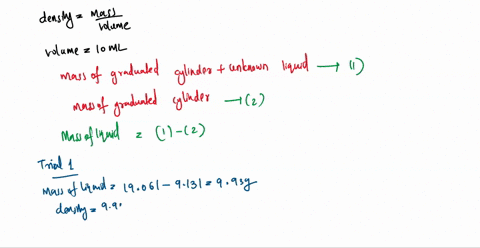 density = mass
volume
volume = 10 mL
mass of graduated cylinder + unknown liquid → (1)
mass of graduated cylinder → (2)
Mass of liquid = (1) - (2)
Trial 1
Mass of liquid = 19.061 - 9.131 = 9.93g
density = 9.9